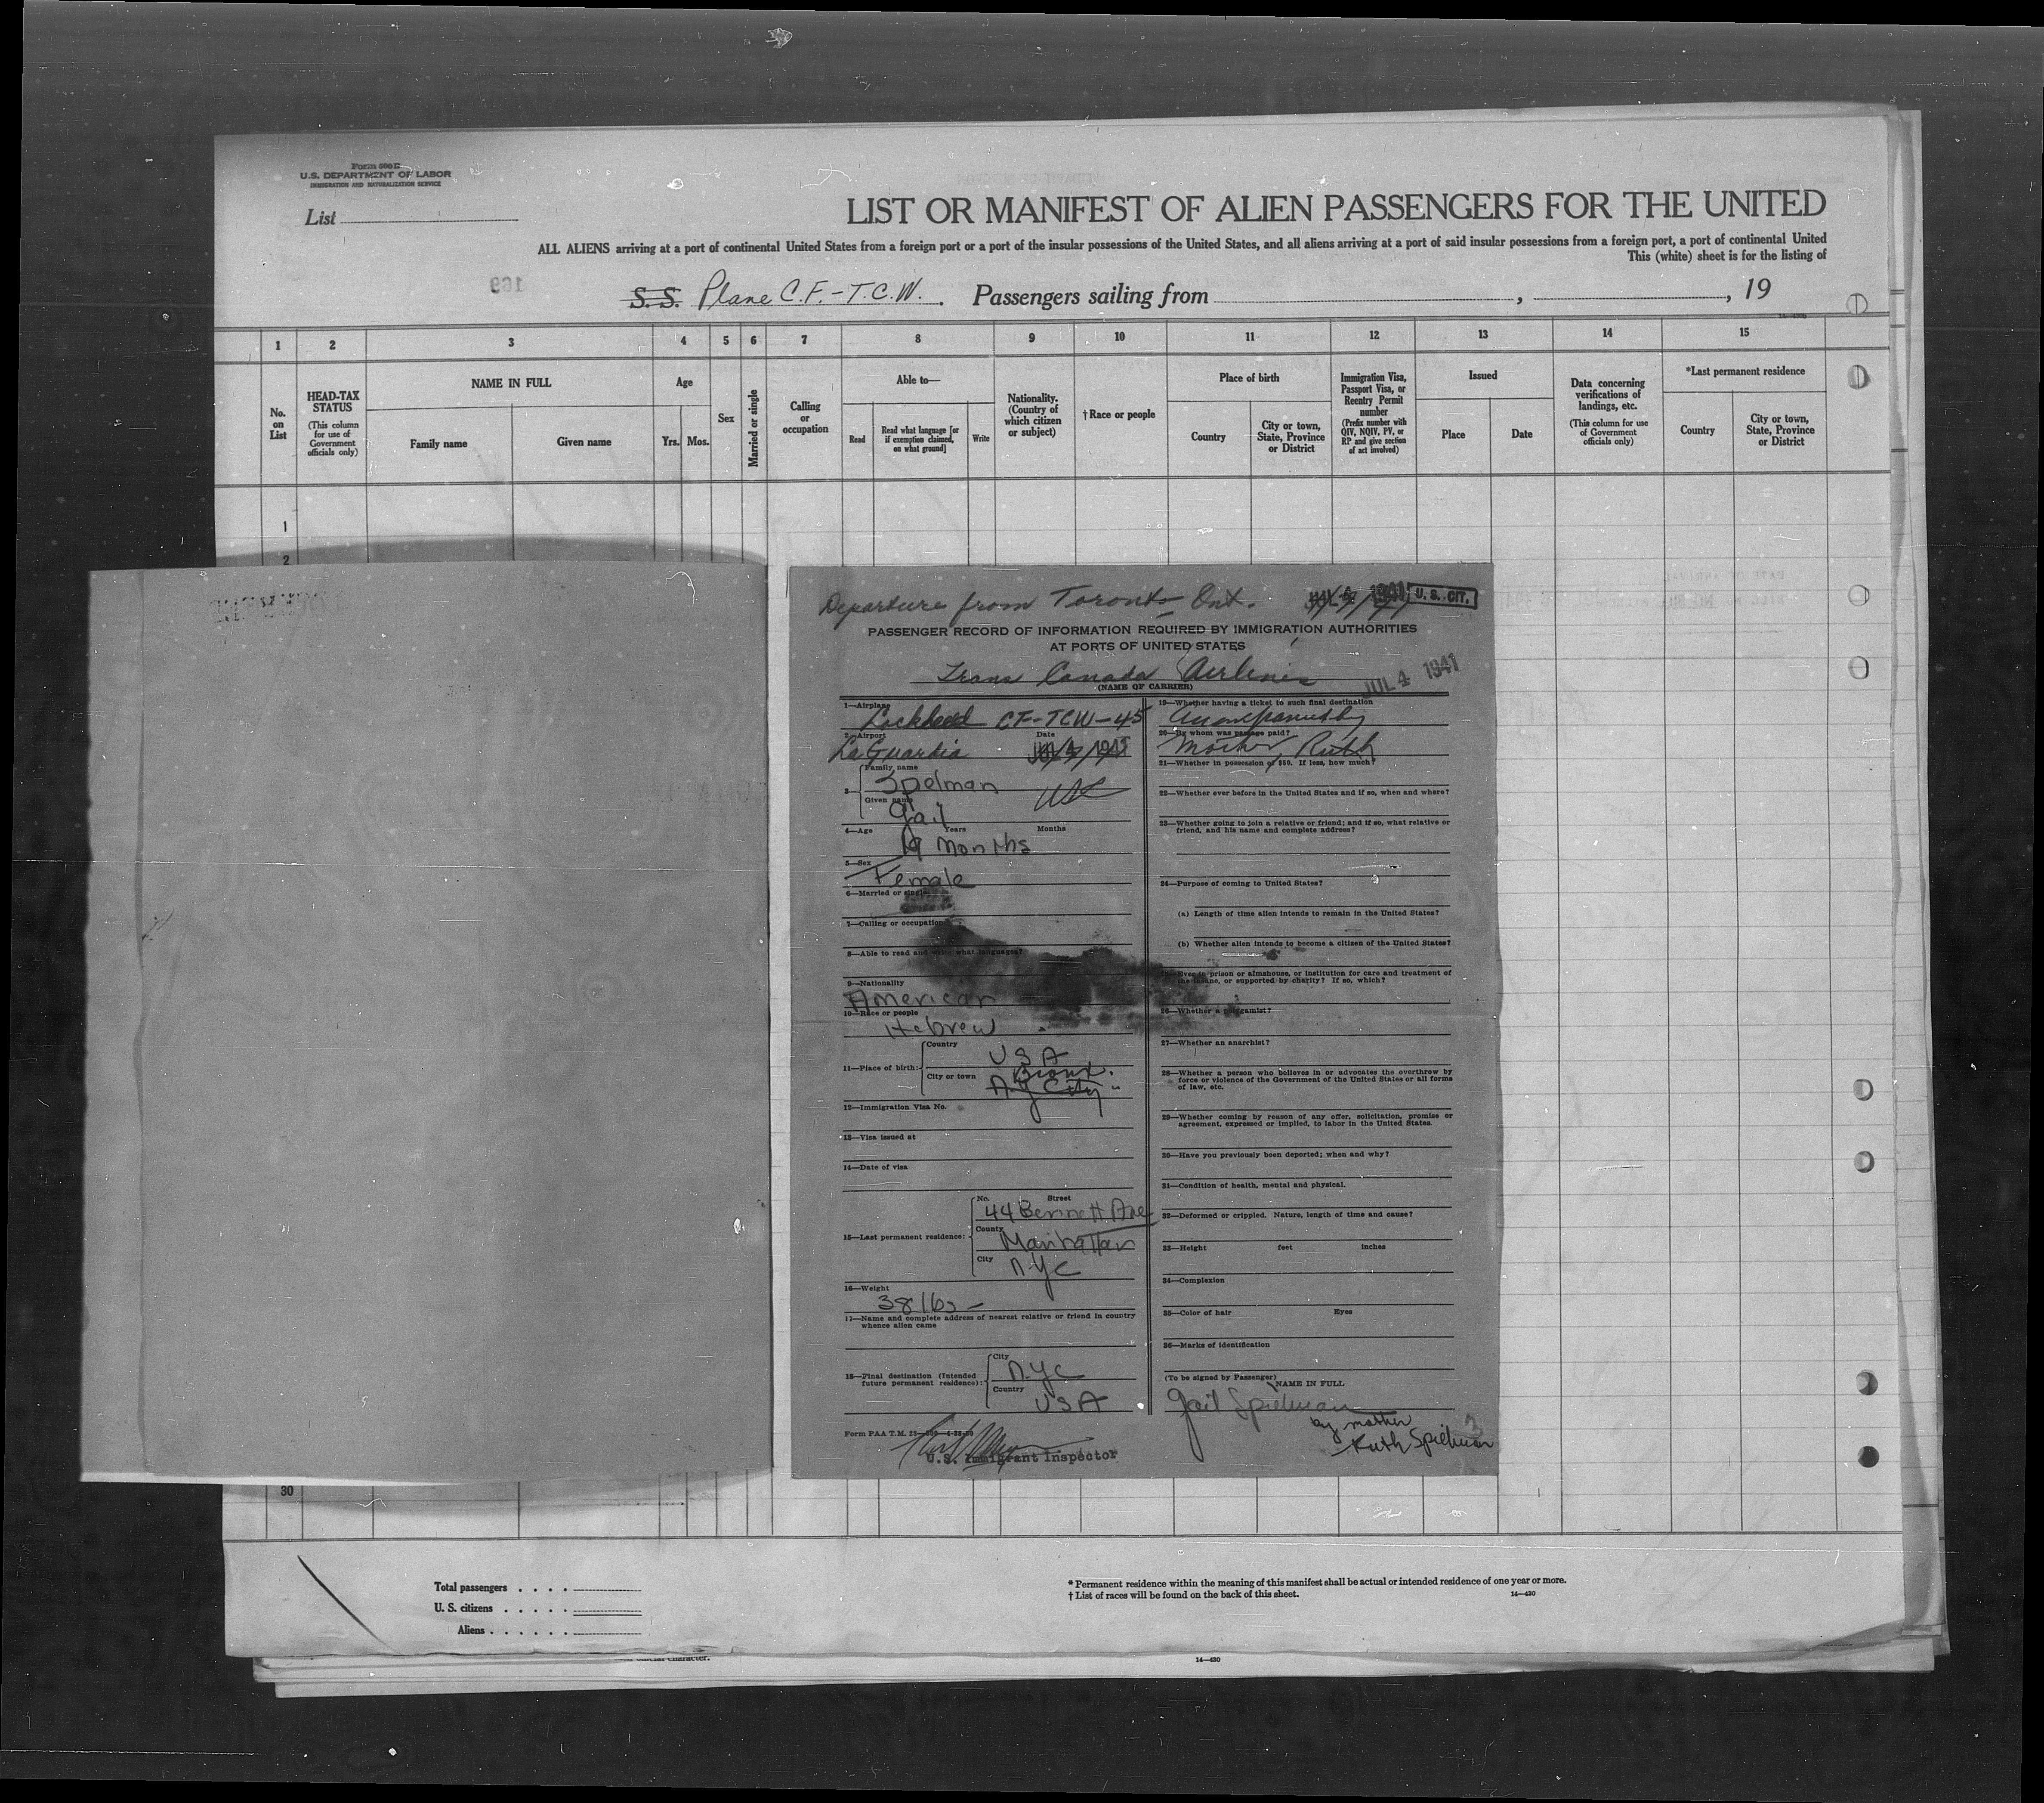 Form 500 B
U.S. DEPARTMENT OF LABOR
IMMIGRATION AND NATURALIZATION SERVICE
List
LIST OR MANIFEST OF ALIEN PASSENGERS FOR THE UNITED
ALL ALIENS arriving at a port of continental United States from a foreign port or a port of the insular possessions of the United States, and all aliens arriving at a port of said insular possessions from a foreign port, a port of continental United
This (white) sheet is for the listing of
169
S.S. Plane C.F.-T.C.W. Passengers sailing from , , 19
1 2 3 4 5 6 7 8 9 10 11 12 13 14 15
No. on List
HEAD-TAX STATUS (This column for use of Government officials only)
NAME IN FULL
Family name
Given name
Age
Yrs. Mos.
Sex
Married or single
Calling or occupation
Able to—
Read
Read what language [or if exemption claimed, on what ground]
Write
Nationality. (Country of which citizen or subject)
† Race or people
Place of birth
Country
City or town, State, Province or District
Immigration Visa, Passport Visa, or Reentry Permit number (Prefix number with QIV, NQIV, PV, or RP and give section of act involved)
Issued
Place
Date
Data concerning verifications of landings, etc. (This column for use of Government officials only)
*Last permanent residence
Country
City or town, State, Province or District
1
2
Departure from Toronto Ont. 1941 U. S. CIT.
PASSENGER RECORD OF INFORMATION REQUIRED BY IMMIGRATION AUTHORITIES
AT PORTS OF UNITED STATES
Trans Canada Airlines
(NAME OF CARRIER)
JUL 4 1941
1—Airplane
Lockheed CF-TCW-45
2—Airport Date
LaGuardia
3—
Family name
Spelman
Given name
Gail
USC
4—Age Years Months
19 Months
5—Sex
Female
6—Married or single
7—Calling or occupation
8—Able to read and write what languages?
9—Nationality
American
10—Race or people
Hebrew
11—Place of birth:
Country
USA
City or town
Bronx.
N.Y City
12—Immigration Visa No.
13—Visa issued at
14—Date of visa
15—Last permanent residence:
No. Street
44 Bennett Ave
County
Manhattan
City
NYC
16—Weight
38 lbs —
17—Name and complete address of nearest relative or friend in country
whence alien came
18—Final destination (Intended
future permanent residence):
City
N.Y.C
Country
USA
Form PAA T.M.
U.S. Immigrant Inspector
19—Whether having a ticket to such final destination
Accompanied by
20—By whom was passage paid?
Mother, Ruth
21—Whether in possession of $50. If less, how much?
22—Whether ever before in the United States and if so, when and where?
23—Whether going to join a relative or friend; and if so, what relative or
friend, and his name and complete address?
24—Purpose of coming to United States?
(a) Length of time alien intends to remain in the United States?
(b) Whether alien intends to become a citizen of the United States?
Ever in prison or almshouse, or institution for care and treatment of
the insane, or supported by charity? If so, which?
26—Whether a polygamist?
27—Whether an anarchist?
28—Whether a person who believes in or advocates the overthrow by
force or violence of the Government of the United States or all forms
of law, etc.
29—Whether coming by reason of any offer, solicitation, promise or
agreement, expressed or implied, to labor in the United States.
30—Have you previously been deported; when and why?
31—Condition of health, mental and physical.
32—Deformed or crippled. Nature, length of time and cause?
33—Height feet inches
34—Complexion
35—Color of hair Eyes
36—Marks of identification
(To be signed by Passenger) NAME IN FULL
Gail Spielman
by mother
Ruth Spielman
3
30
Total passengers
U. S. citizens
Aliens
* Permanent residence within the meaning of this manifest shall be actual or intended residence of one year or more.
† List of races will be found on the back of this sheet.
14—420
14—420